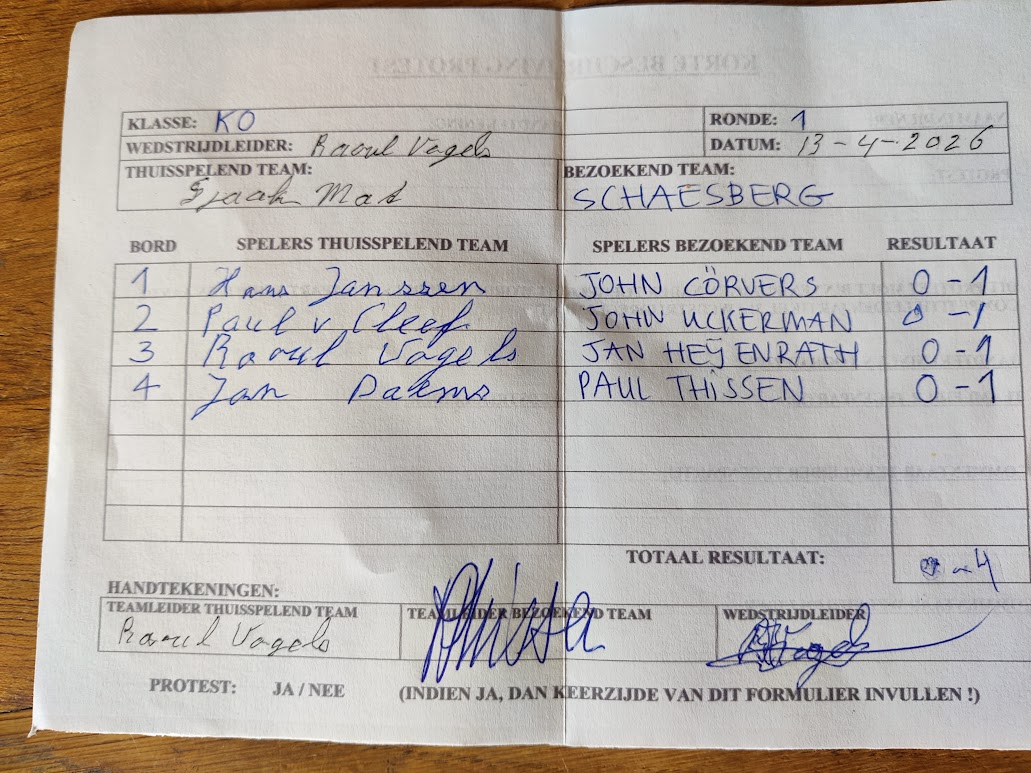 KLASSE: KO RONDE: 1
WEDSTRIJDLEIDER: Raoul Vogels DATUM: 13-4-2026
THUISSPELEND TEAM: BEZOEKEND TEAM:
Sjaak Mat SCHAESBERG
BORD SPELERS THUISSPELEND TEAM SPELERS BEZOEKEND TEAM RESULTAAT
1 Hans Janssen JOHN CÖRVERS 0-1
2 Paul v Cleef JOHN UCKERMAN 0-1
3 Raoul Vogels JAN HEIJENRATH 0-1
4 Jan Daems PAUL THISSEN 0-1
TOTAAL RESULTAAT: 0-4
HANDTEKENINGEN:
TEAMLEIDER THUISSPELEND TEAM TEAMLEIDER BEZOEKEND TEAM WEDSTRIJDLEIDER
Raoul Vogels RVogels
PROTEST: JA / NEE (INDIEN JA, DAN KEERZIJDE VAN DIT FORMULIER INVULLEN !)